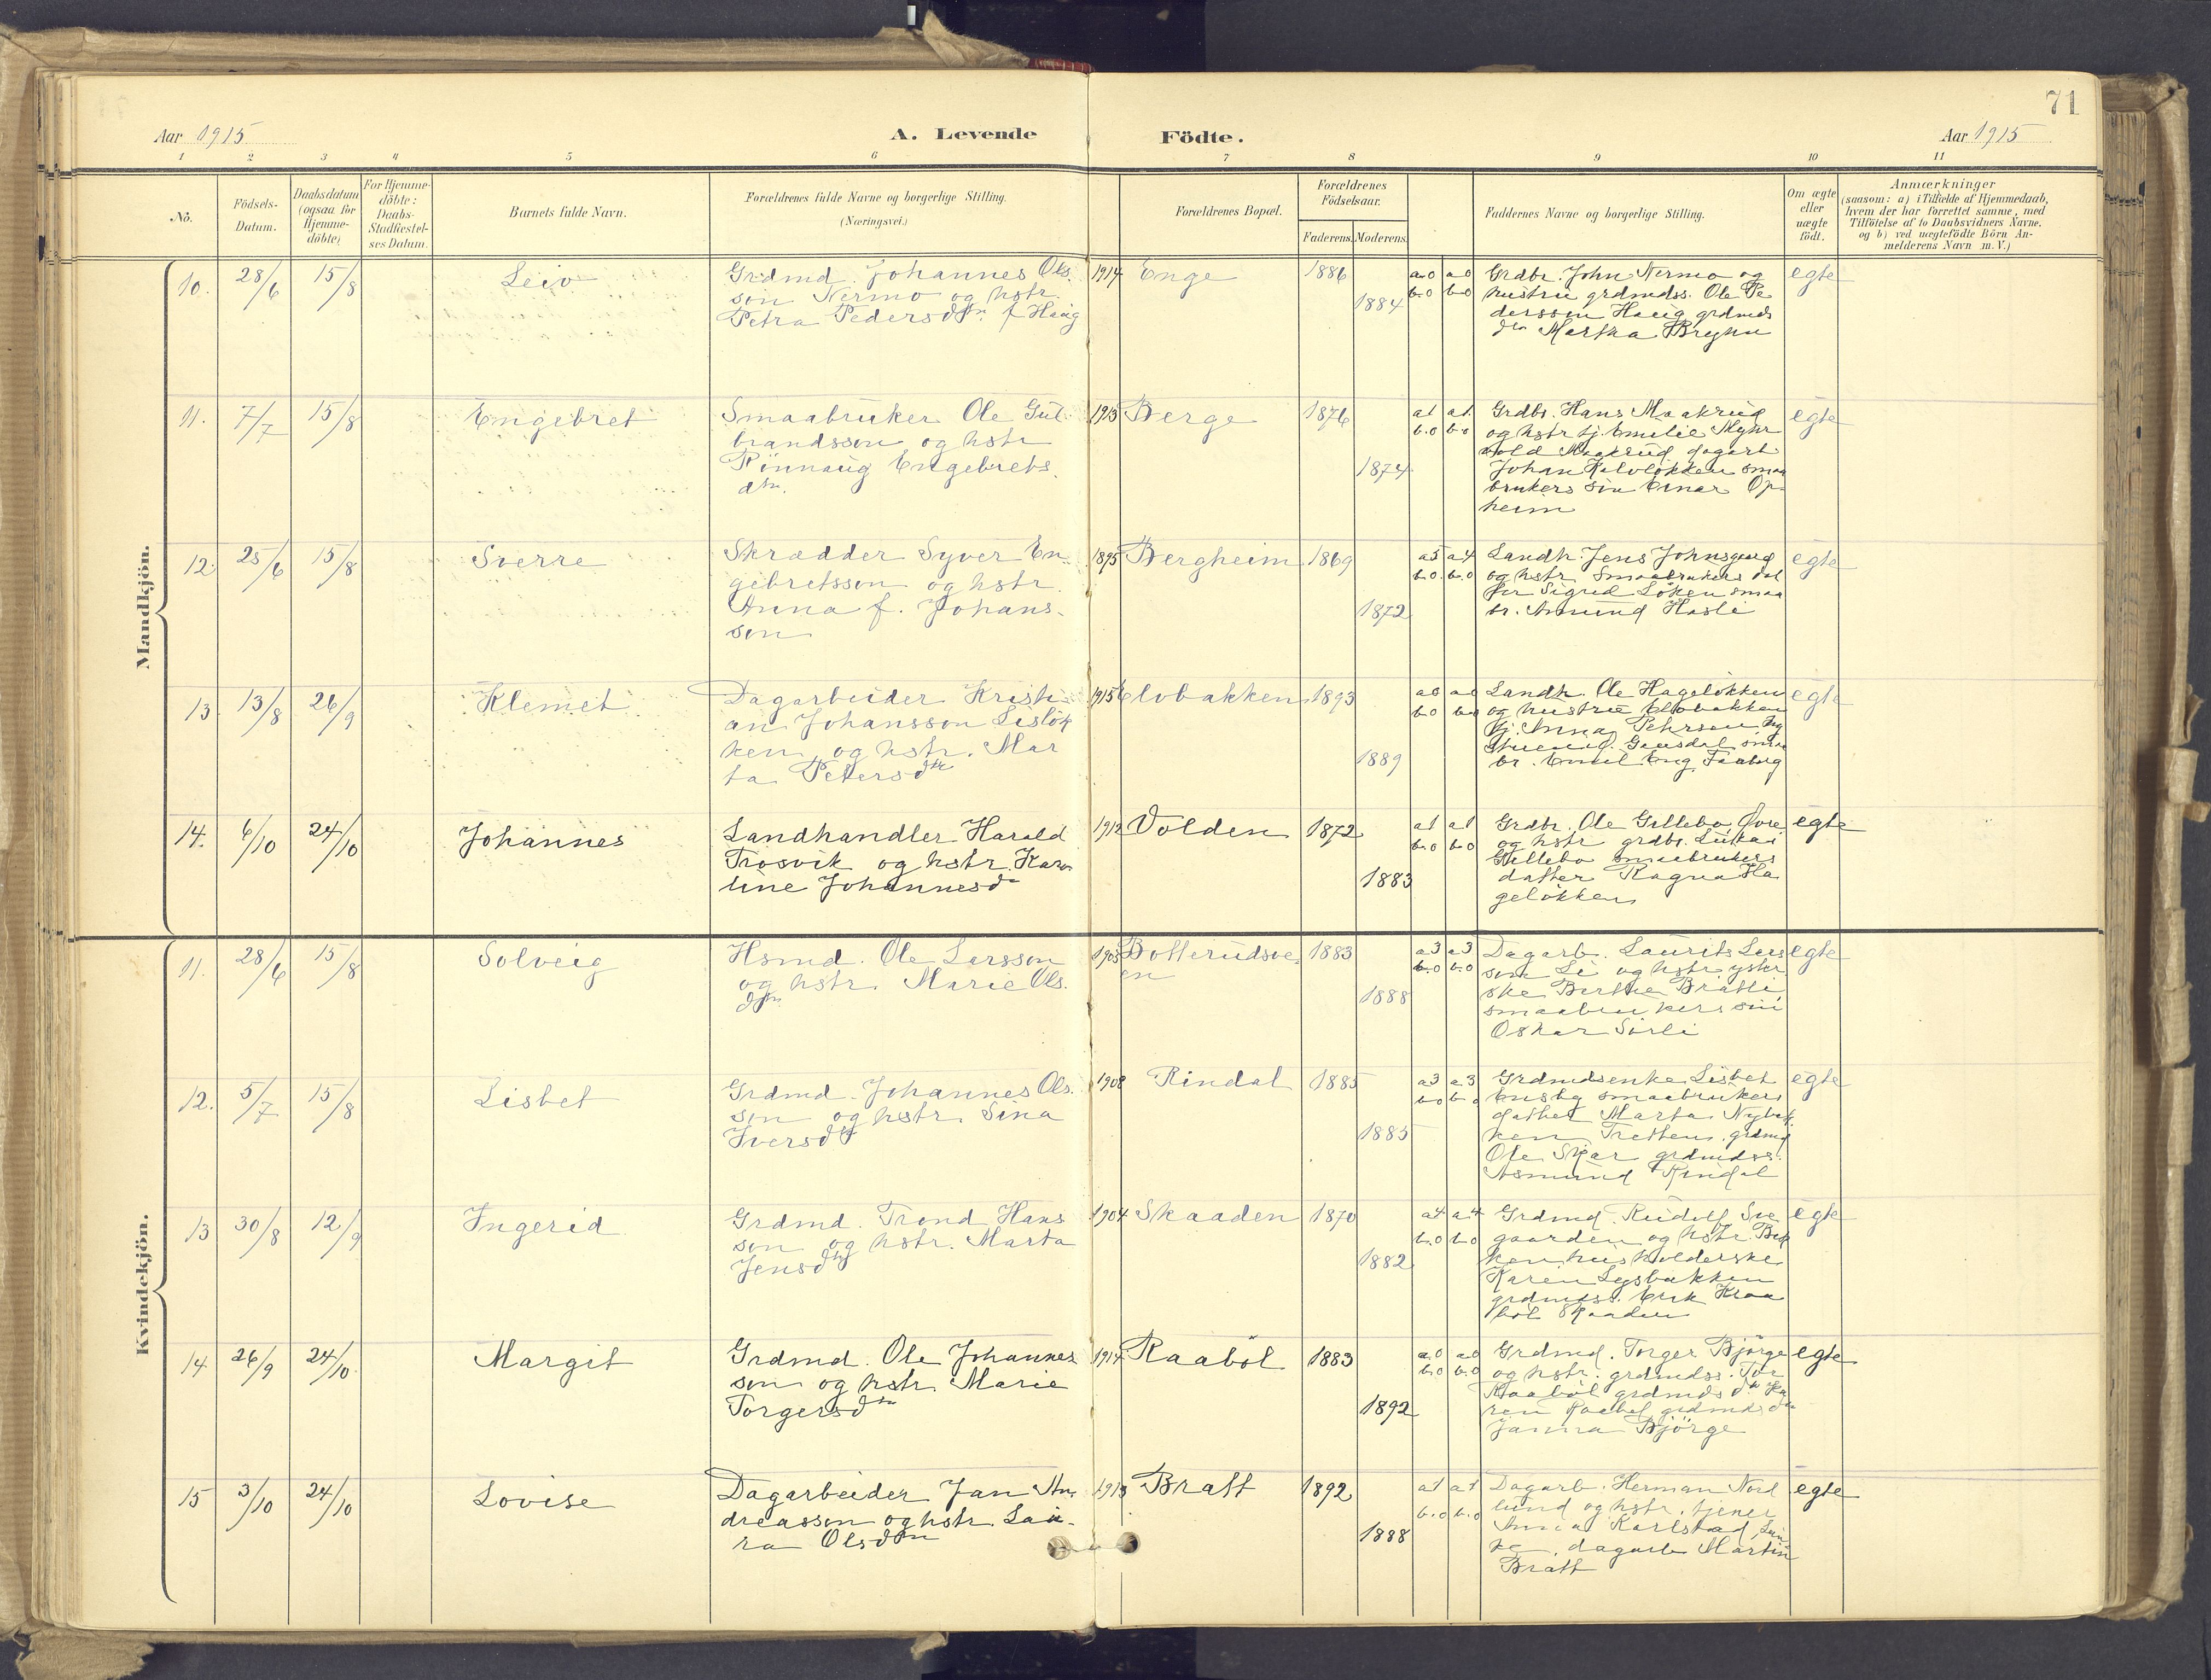 71
Aar 1915
A. Levende Födte.
Aar 1915
1 2 3 4 5 6 7 8 9 10 11
No.
Födsels-
Datum.
Daabsdatum
(ogsaa for
Hjemme-
döbte)
For Hjemme-
döbte:
Daabs-
Stadfæstel-
ses Datum.
Barnets fulde Navn.
Forældrenes fulde Navne og borgerlige Stilling.
(Næringsvei.)
Forældrenes Bopæl.
Forældrenes
Födselsaar.
Faderens. Moderens.
Faddernes Navne og borgerlige Stilling.
Om ægte
eller
uægte
födt.
Anmærkninger
(saasom: a) i Tilfælde af Hjemmedaab,
hvem der har forrettet samme, med
Tilföielse af to Daabsvidners Navne.
og b) ved uægtefödte Börn An-
melderens Navn m. V.)
Mandkjön.
10. 28/6 15/8 Leiv
Grdmd. Johannes Ols.
son Nermo og hstr.
Petra Pedersdtr. f Haug
1914 Enge 1886
1884
a.0 a.0
b.0 b.0
Grdbr. John Nermo og
hustru grdmdss. Ole Pe
dersson Haug grdmds
dtr Martha Bryhn
egte
11. 7/7 15/8 Engebret
Smaabruker Ole Gul
brandsson og hstr
Rönnaug Engebrets.
dtr.
1913 Berge 1876
1874
a1 a1
b.0 b.0
Grdbr. Hans Maakrud
og hstr tj. Emelie
Maakrud dagarb
Johan smaa
brukers sön Einar Op-
heim
egte
12. 25/6 15/8 Sverre
Skrædder Syver En
gebretsson og hstr.
Anna f. Johans-
sen
1895 Bergheim 1869
1872
a5 a4
b.0. b.0
Landh. Jens Johnsgaard
og hstr. Smaabrukers dat
ter Sigrid Löken smaa
br. Amund Hasli
egte
13. 13/8 26/9 Klemet
Dagarbeider Kristi
an Johansson Lislök
ken og hstr. Mar
ta Petersdtr
1915 Elvbakken 1893
1889
a0 a0
b.0 b.0
Landh. Ole Hagelökken
og hustru Elvebakken
tj. Anna Pehrsen
Gausdal smaa
br. Emil Eng Faaberg
egte
14. 6/10 24/10 Johannes
Landhandler Harald
Trosvik og hstr. Karo
line Johannesdr
1912 Volden 1872
1883
a1 a1
b.0 b.0
Grdbr. Ole Gillebo Övre
og hstr grdbr.
Gillebo smaabrukers
datter Ragna Ha
gelökken
egte
Kvindekjön.
11. 28/6 15/8 Solveig
Hsmd. Ole Larsson
og hstr. Marie Ols.
dtr.
1903 Botterudsve
en 1883
1888
a3 a3
b.0 b.0
Dagarb. Laurits Lars
son Li og hstr. yster
ske Berthe Bratli
smaabrukers sön
Oskar Sörli
egte
12. 5/7 15/8 Lisbet
Grdmd. Johannes Ols.
son og hstr. Sina
Iversdtr
1908 Rindal 1885
1885
a3 a3
b.0 b.0
Grdmdsenke Lisbet
Ensby smaabrukers
datter Marta Nybak
ken Tretten. grdmd
Ole Skar grdmdss.
Asmund Rindal
egte
13 30/8 12/9 Ingerid
Grdmd. Trond Hans
son og hstr. Marta
Jensdtr
1904 Skaaden 1870
1882
a4 a4
b.0 b.0
Grdmd. Rudolf Sve
gaarden og hstr. Bak
ken husholderske
Karen Lysbakken
grdmdss. Erik Kraa
böl Skaaden
egte
14. 26/9 24/10. Margit
Grdmd. Ole Johannes
son og hstr. Marie
Torgersdtr
1914 Raaböl 1883
1892
a.0 a.0
b.0 b.0
Grdmd. Torger Björge
og hstr. grdmdss. Tor
Raaböl grdmds dtr Ka
ren Raaböl grdmds dtr
Janna Björge
egte
15 3/10 24/10 Lovise
Dagarbeider Jan An.
dreasson og hstr. Lau-
ra Olsdtr
1913 Bratt 1892
1888
a1 a1
b.0 b.0
Dagarb. Herman Nord
lund og hstr. tjener
Anna Karlstad,
dagarb Martin
Bratt
egte